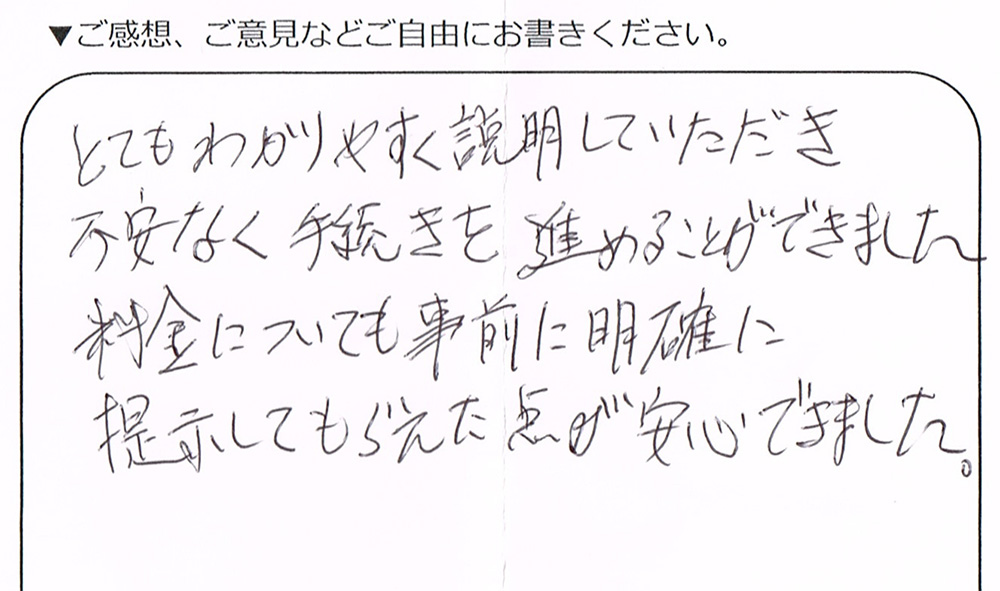 ▼ご感想、ご意見などご自由にお書きください。
とてもわかりやすく説明していただき
不安なく手続きを進めることができました
料金についても事前に明確に
提示してもらえた点が安心できました。